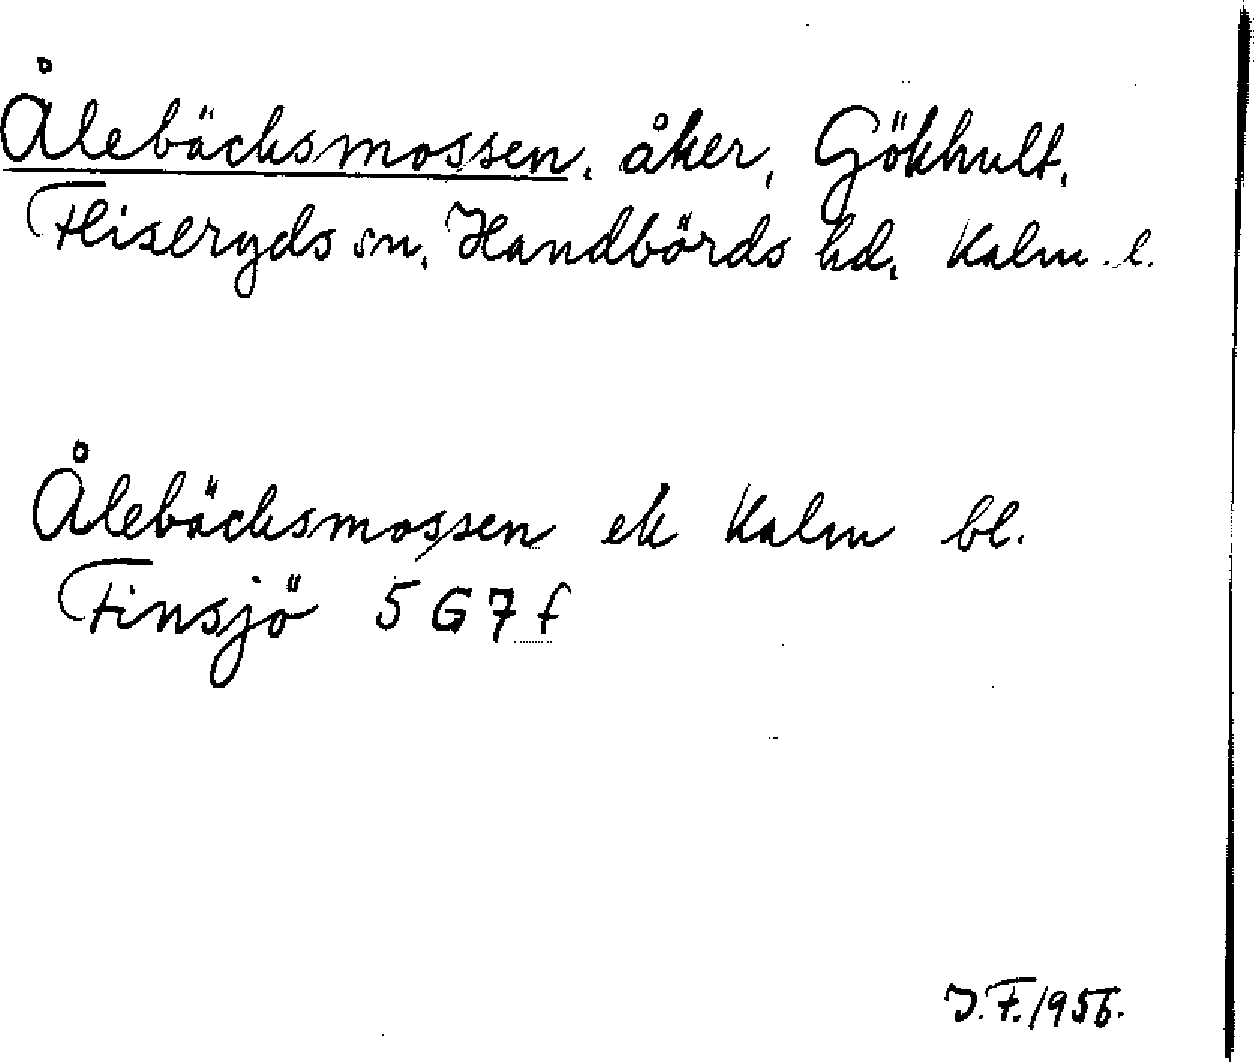 Ålebäcksmossen, åker, Gökhult,
Fliseryds sn, Handbörds hd, Kalm. l.
Ålebäcksmossen ek Kalm bl.
Finsjö 5 G 7 f
J. F. 1956.